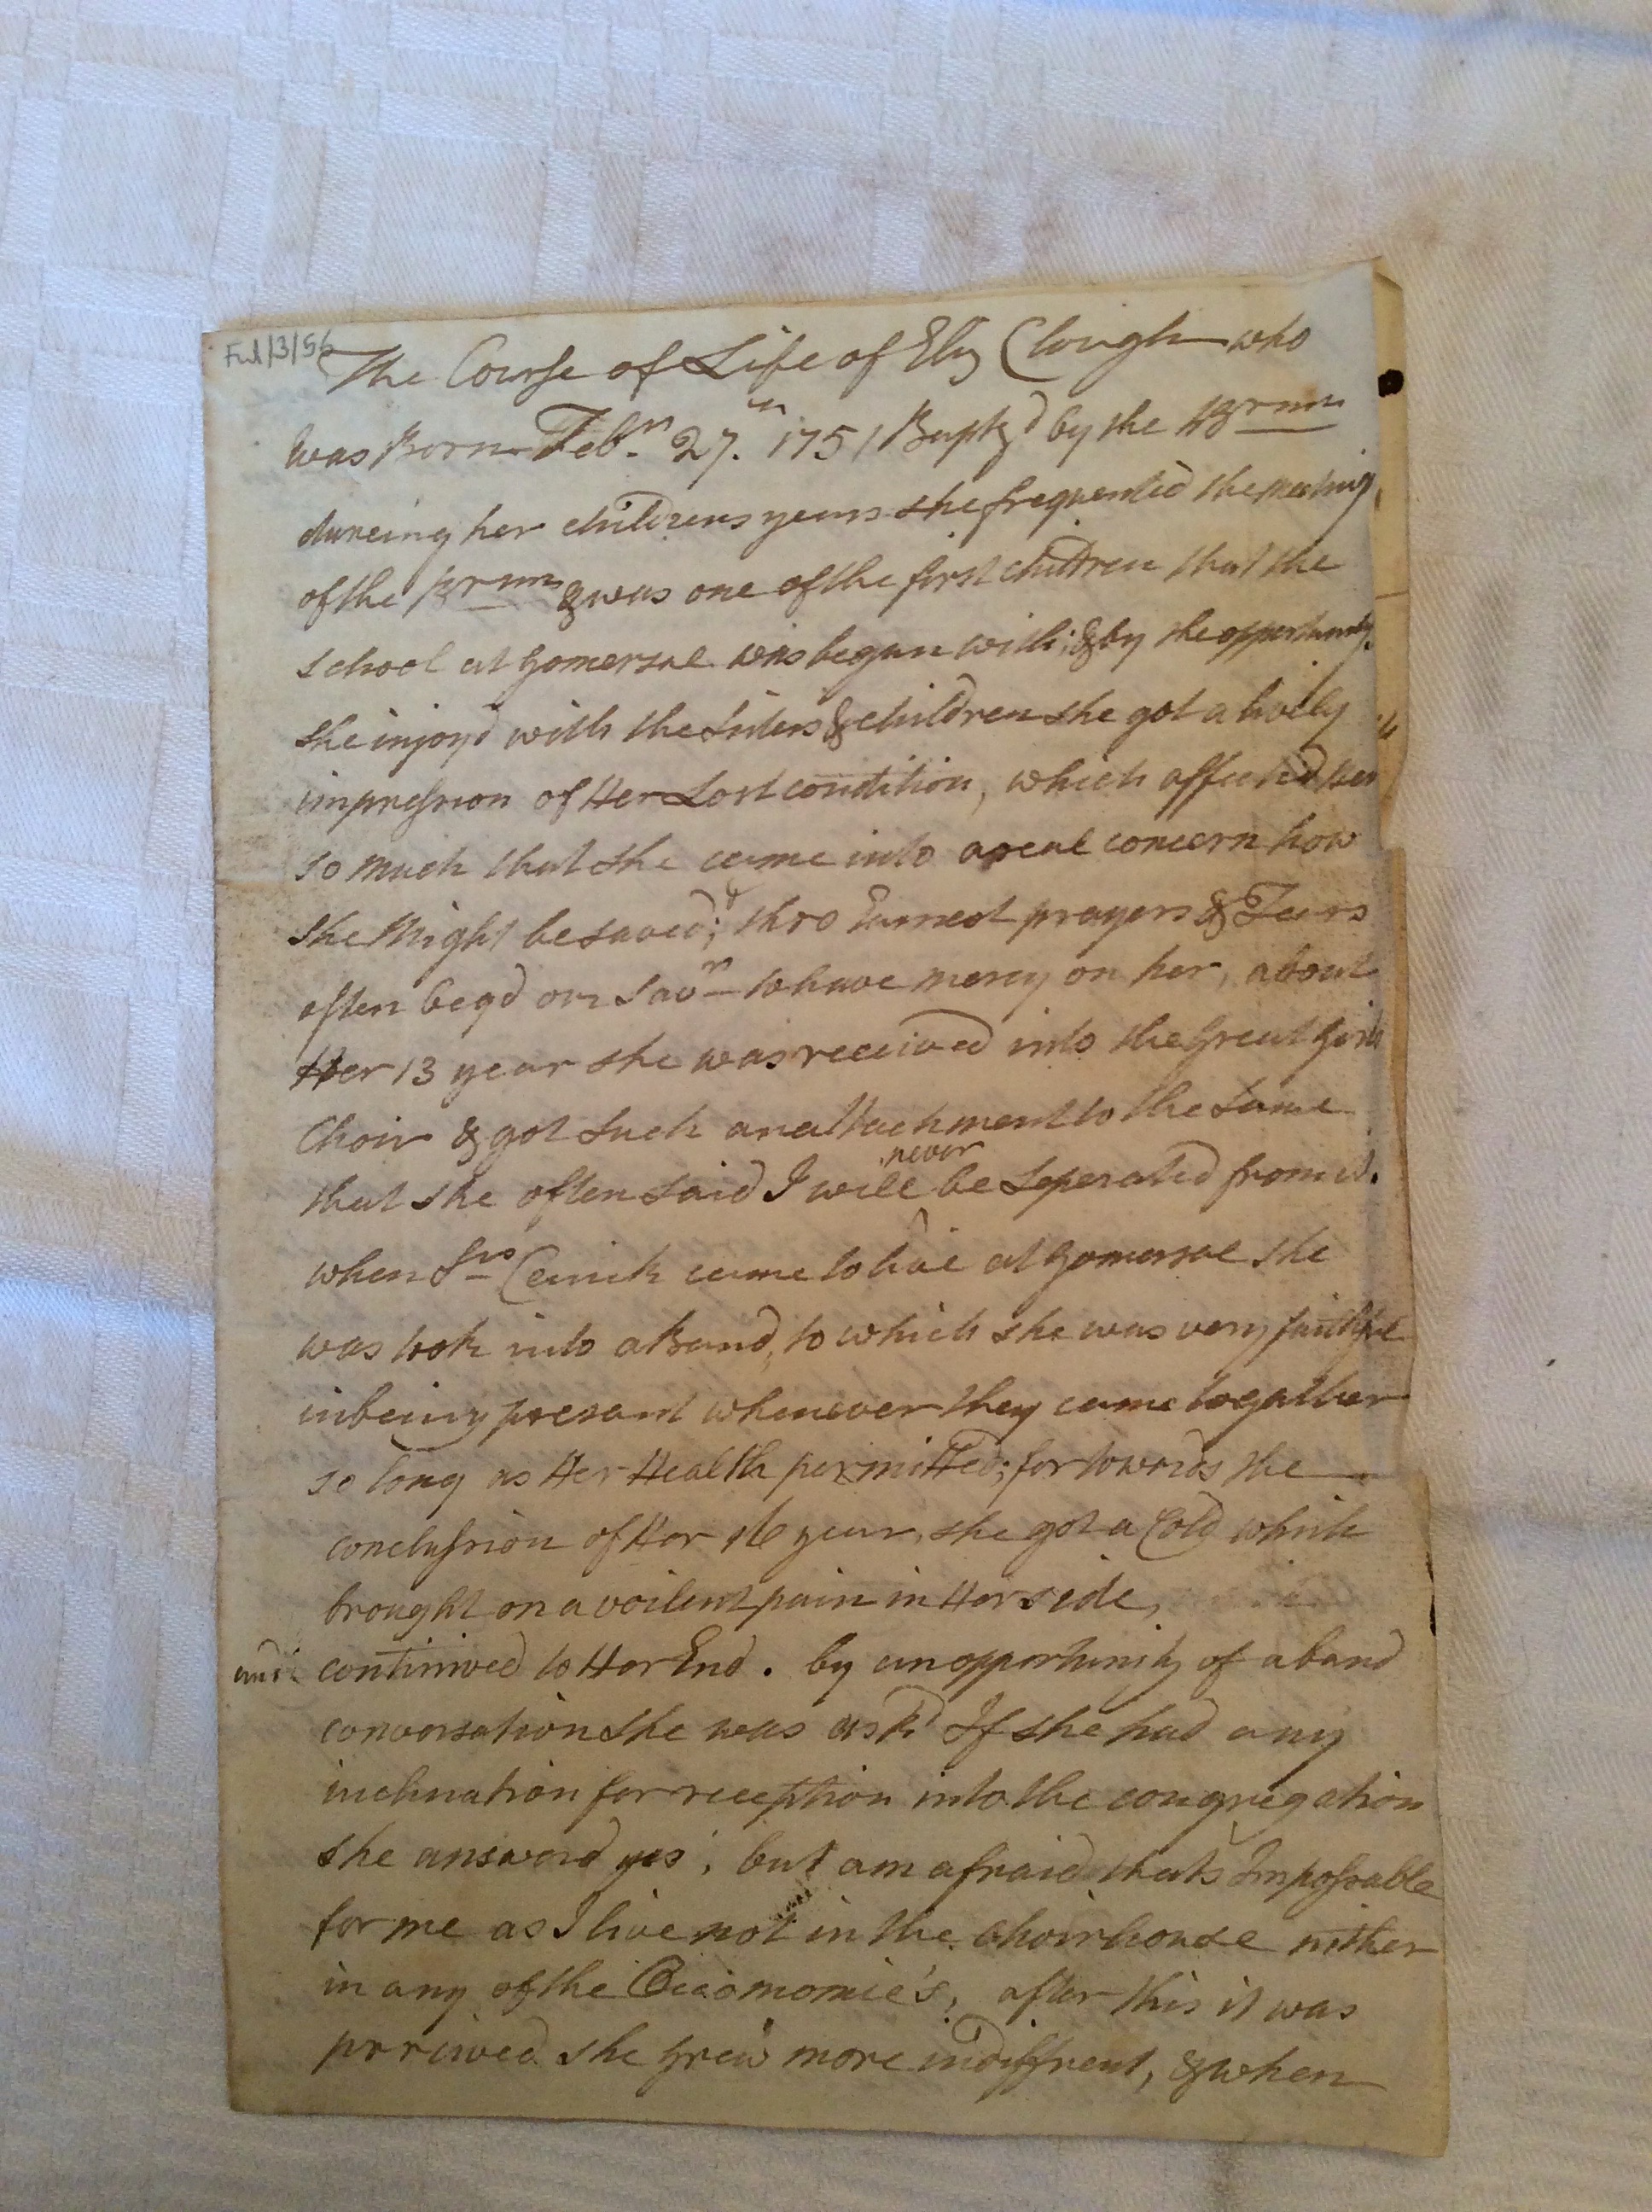 Ful/3/56
The Course of Life of Eliz Clough who
was Born Feb.ry 27.th 1751 Baptz'd by the Brnn
dureing her childrens years she frequented the meeting
of the Brnn & was one of the first children that the
school at Gomersal was began with; & by the opportunity
she injoy'd with the Sisters & children she got a lively
impression of Her Lost condition, which affected her
so much that she came into a real concern how
she Might be saved; & thro Earnest prayers & Tears
often beg'd our Savr to have mercy on her, about
Her 13 year she was received into the Great Girls
Choir & got such an attachment to the same
that she often said I will never be seperated from it.
when Srs Cenick came to live at Gomersal she
was took into a Band, to which she was very faithful
in being presant whenever they came togather
so long as Her Health permitted; for towards the
conclussion of Her 16 year, she got a Cold which
brought on a voilent pain in Her side,
and continiwed to Her End. by an opportunity of a band
conversation she was ask'd If she had any
inclination for reception into the congregation
she answerd yes, but am afraid thats Impossable
for me as I live not in the choirhouse nither
in any of the Oeconomie's, after this it was
prrciived she grew more indiffrent, & when